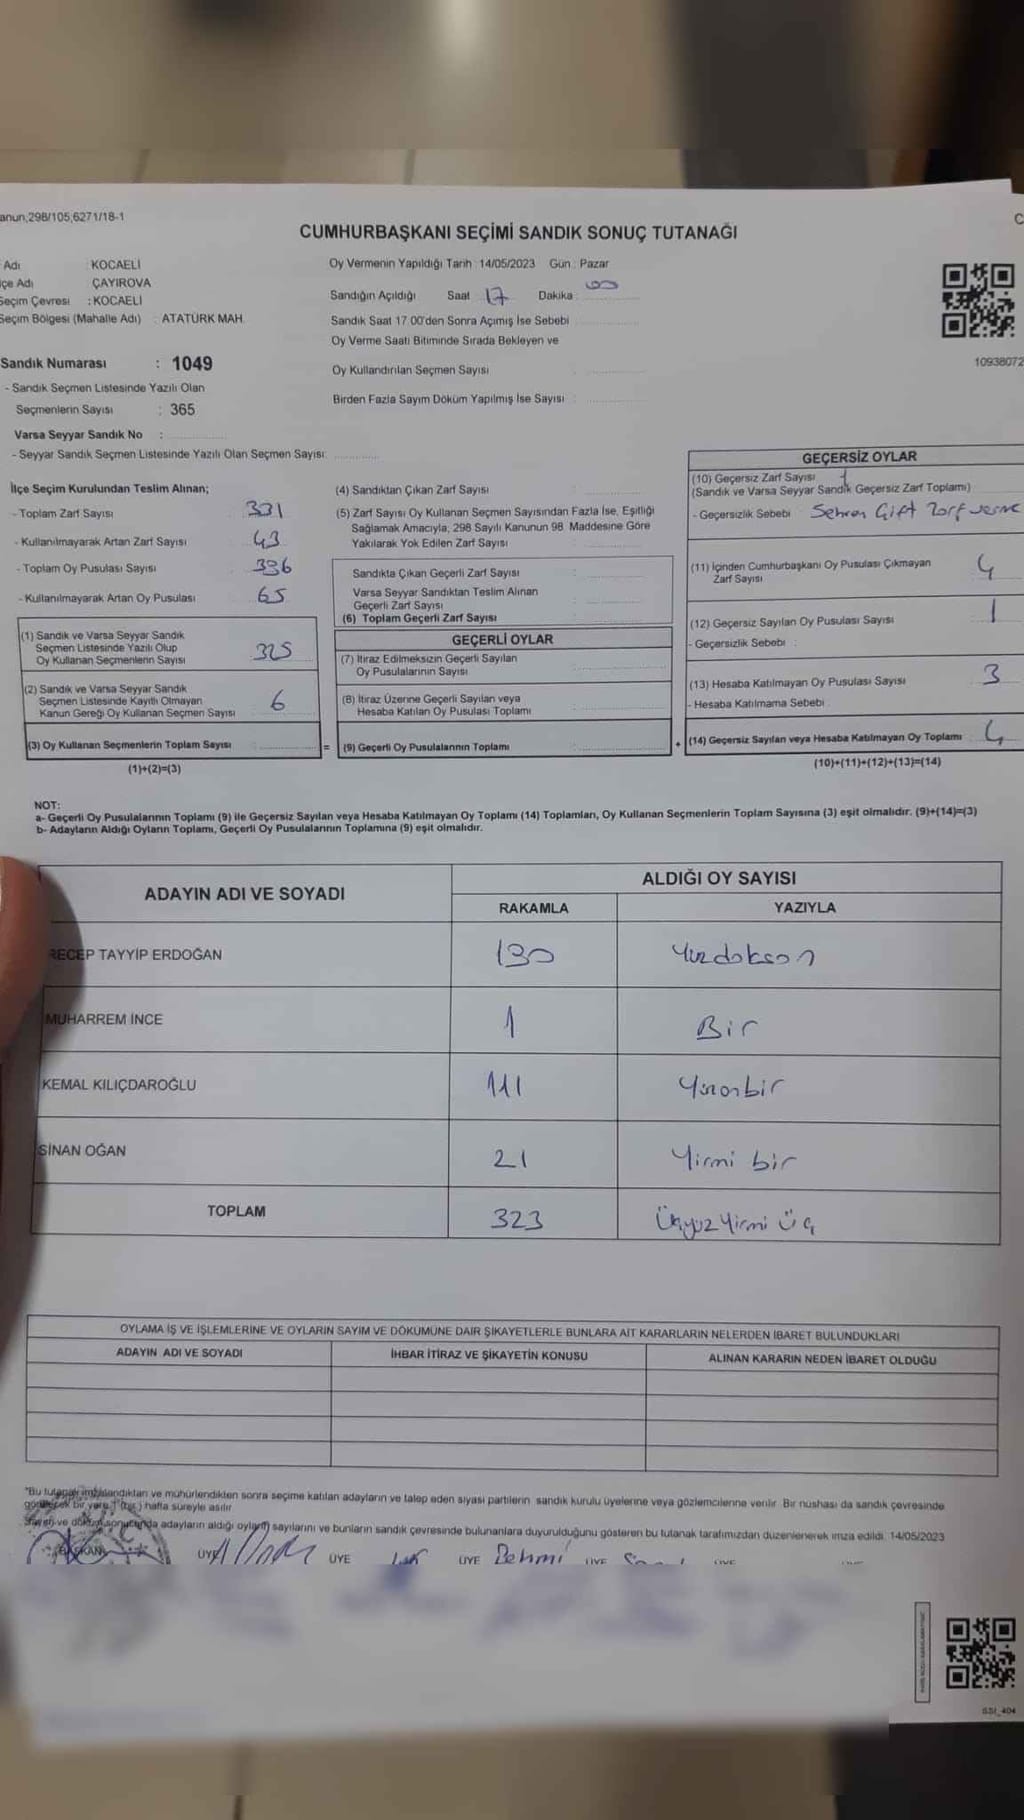 anun,298/105,6271/18-1
CUMHURBAŞKANI SEÇİMİ SANDIK SONUÇ TUTANAĞI
Adı : KOCAELİ
lçe Adı ÇAYIROVA
Seçim Çevresi : KOCAELİ
Seçim Bölgesi (Mahalle Adı) : ATATÜRK MAH.
Oy Vermenin Yapıldığı Tarih : 14/05/2023 Gün : Pazar
Sandığın Açıldığı Saat 17 Dakika 00
Sandık Saat 17.00'den Sonra Açımış İse Sebebi
Oy Verme Saati Bitiminde Sırada Bekleyen ve
Oy Kullandırılan Seçmen Sayısı
Birden Fazla Sayım Döküm Yapılmış İse Sayısı :
10938072
Sandık Numarası : 1049
- Sandık Seçmen Listesinde Yazılı Olan
Seçmenlerin Sayısı : 365
Varsa Seyyar Sandık No :
- Seyyar Sandık Seçmen Listesinde Yazılı Olan Seçmen Sayısı:
İlçe Seçim Kurulundan Teslim Alınan;
- Toplam Zarf Sayısı 331
- Kullanılmayarak Artan Zarf Sayısı 43
- Toplam Oy Pusulası Sayısı 396
- Kullanılmayarak Artan Oy Pusulası 65
(1) Sandık ve Varsa Seyyar Sandık
Seçmen Listesinde Yazılı Olup
Oy Kullanan Seçmenlerin Sayısı 325
(2) Sandık ve Varsa Seyyar Sandık
Seçmen Listesinde Kayıtlı Olmayan
Kanun Gereği Oy Kullanan Seçmen Sayısı 6
(3) Oy Kullanan Seçmenlerin Toplam Sayısı :
(1)+(2)=(3)
=
(4) Sandıktan Çıkan Zarf Sayısı :
(5) Zarf Sayısı Oy Kullanan Seçmen Sayısından Fazla İse, Eşitliği
Sağlamak Amacıyla, 298 Sayılı Kanunun 98. Maddesine Göre
Yakılarak Yok Edilen Zarf Sayısı :
Sandıkta Çıkan Geçerli Zarf Sayısı :
Varsa Seyyar Sandıktan Teslim Alınan
Geçerli Zarf Sayısı :
(6) Toplam Geçerli Zarf Sayısı :
GEÇERLİ OYLAR
(7) İtiraz Edilmeksizin Geçerli Sayılan
Oy Pusulalarının Sayısı :
(8) İtiraz Üzerine Geçerli Sayılan veya
Hesaba Katılan Oy Pusulası Toplamı :
(9) Geçerli Oy Pusulalarının Toplamı :
+
GEÇERSİZ OYLAR
(10) Geçersiz Zarf Sayısı 1
(Sandık ve Varsa Seyyar Sandık Geçersiz Zarf Toplamı)
- Geçersizlik Sebebi : Sehven Çift Zarf verme
(11) İçinden Cumhurbaşkanı Oy Pusulası Çıkmayan
Zarf Sayısı 4
(12) Geçersiz Sayılan Oy Pusulası Sayısı 1
- Geçersizlik Sebebi :
(13) Hesaba Katılmayan Oy Pusulası Sayısı 3
- Hesaba Katılmama Sebebi :
(14) Geçersiz Sayılan veya Hesaba Katılmayan Oy Toplamı : 4
(10)+(11)+(12)+(13)=(14)
NOT:
a- Geçerli Oy Pusulalarının Toplamı (9) ile Geçersiz Sayılan veya Hesaba Katılmayan Oy Toplamı (14) Toplamları, Oy Kullanan Seçmenlerin Toplam Sayısına (3) eşit olmalıdır. (9)+(14)=(3)
b- Adayların Aldığı Oyların Toplamı, Geçerli Oy Pusulalarının Toplamına (9) eşit olmalıdır.
ADAYIN ADI VE SOYADI ALDIĞI OY SAYISI
RAKAMLA YAZIYLA
RECEP TAYYİP ERDOĞAN 190 Yüzdoksan
MUHARREM İNCE 1 Bir
KEMAL KILIÇDAROĞLU 111 Yüzonbir
SİNAN OĞAN 21 Yirmi bir
TOPLAM 323 Üçyüz Yirmi Üç
OYLAMA İŞ VE İŞLEMLERİNE VE OYLARIN SAYIM VE DÖKÜMÜNE DAİR ŞİKAYETLERLE BUNLARA AİT KARARLARIN NELERDEN İBARET BULUNDUKLARI
ADAYIN ADI VE SOYADI İHBAR İTİRAZ VE ŞİKAYETİN KONUSU ALINAN KARARIN NEDEN İBARET OLDUĞU
"Bu tutanak imzalandıktan ve mühürlendikten sonra seçime katılan adayların ve talep eden siyasi partilerin sandık kurulu üyelerine veya gözlemcilerine verilir. Bir nüshası da sandık çevresinde
görülecek bir yere 1 (bir) hafta süreyle asılır.
Sayım ve döküm sonucunda adayların aldığı oyların sayılarını ve bunların sandık çevresinde bulunanlara duyurulduğunu gösteren bu tutanak tarafımızdan düzenlenerek imza edildi. 14/05/2023
BAŞKAN ÜYE ÜYE ÜYE Behmi ÜYE ÜYE
SSI_404